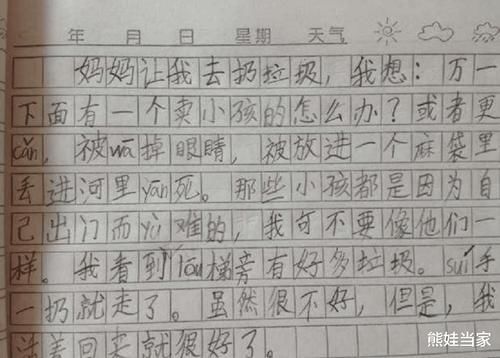 年 月 日 星期 天气
妈妈让我去扔垃圾，我想：万一
下面有一个卖小孩的怎么办？或者更
cǎn，被wā掉眼睛，被放进一个麻袋里
丢进河里yān死。那些小孩都是因为自
己出门而yù难的，我可不要像他们一
样。我看到lóu梯旁有好多垃圾。suí手
一扔就走了。虽然很不好，但是，我
活着回来就很好了。
熊娃当家